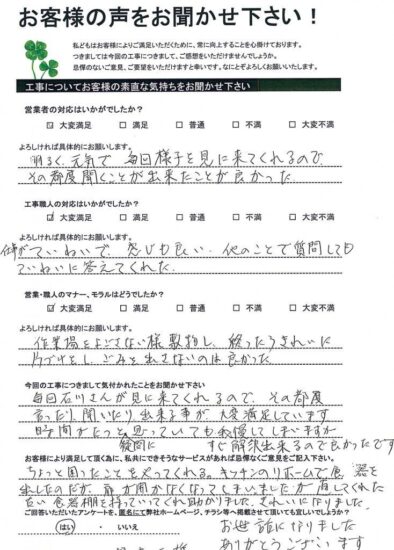 お客様の声をお聞かせ下さい！
私どもはお客様によりご満足いただくために、常に向上することを心掛けております。
つきましては今回の工事につきまして、ご感想をいただけませんでしょうか。
忌憚のないご意見、ご要望をいただけますと幸いです。なにとぞよろしくお願いいたします。
工事についてお客様の素直な気持ちをお聞かせ下さい
営業者の対応はいかがでしたか？
☑ 大変満足 □ 満足 □ 普通 □ 不満 □ 大変不満
よろしければ具体的にお願します。
明るく、元気で 毎回様子を見に来てくれるので
その都度聞くことが出来たことが良かった
工事職人の対応はいかがでしたか？
☑ 大変満足 □ 満足 □ 普通 □ 不満 □ 大変不満
よろしければ具体的にお願します。
仕事がていねいで、感じも良い、他のことで質問しても
ていねいに答えてくれた。
営業・職人のマナー、モラルはどうでしたか？
☑ 大変満足 □ 満足 □ 普通 □ 不満 □ 大変不満
よろしければ具体的にお願します。
作業場をよごさない様敷物し、終ったらきれいに
片づけをし、ごみを出さないのは良かった
今回の工事につきまして気付かれたことをお聞かせ下さい
毎回石川さんが見に来てくれるので、その都度
言ったり、聞いたり出来る事が、大変満足しています
時間がたつと、思っていても我慢してしまいますが
質問に すぐ解決出来るので良かったです
お客様により満足して頂く為に、私共にできそうなサービスがあれば忌憚なくご意見をご記入下さい。
ちょっと困ったことをやってくれる。キッチンのリホームで食器を
出したのだが、扉が開かなくなってしまいましたが直してくれた
古い食器棚を持っていってくれ助かりました。きれいになりました。
ご回答いただいたアンケートを、匿名にて弊社ホームページ、チラシ等へ掲載させて頂いても宜しいでしょうか？
はい ・ いいえ
お世話になりました
ありがとうございます